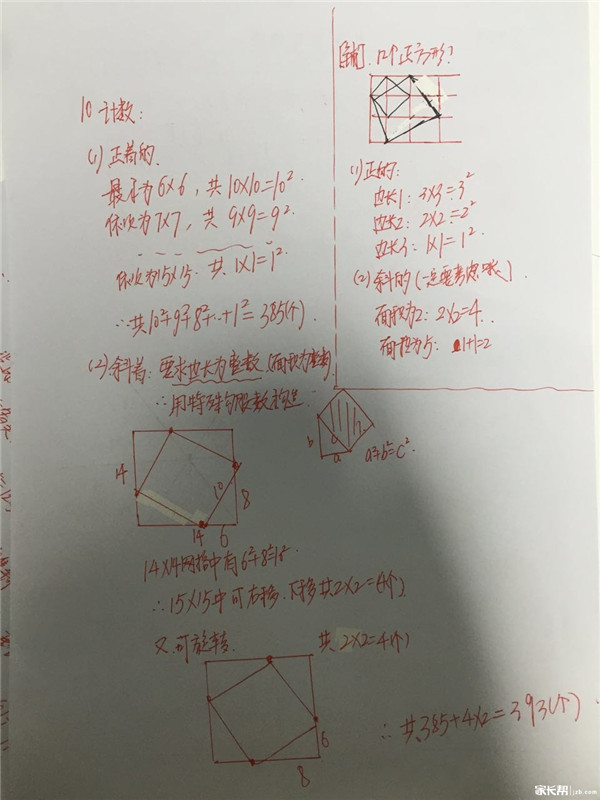 10 计数:
(1) 正着的.
最小为6×6, 共10×10=10².
依次为7×7, 共 9×9=9².
依次为15×15. 共 1×1=1².
∴共10²+9²+8²+...+1²=385(个).
(2) 斜着: 要求边长为整数(面积为整数)
∴用特殊勾股数构造.
14
10
8
14 6
b
c
a
a²+b²=c².
14×14网格中有6²+8²=10²
∴15×15中可右移、下移共2×2=4(个)
又可旋转 共 2×2=4(个)
6
8
∴共385+4×2=393(个)
12个正方形?
(1) 正的:
边长1: 3×3=3²
边长2: 2×2=2²
边长3: 1×1=1².
(2) 斜的(一定要考虑哦).
面积为2: 2×2=4.
面积为5: 1+1=2
家长帮 jzb.com